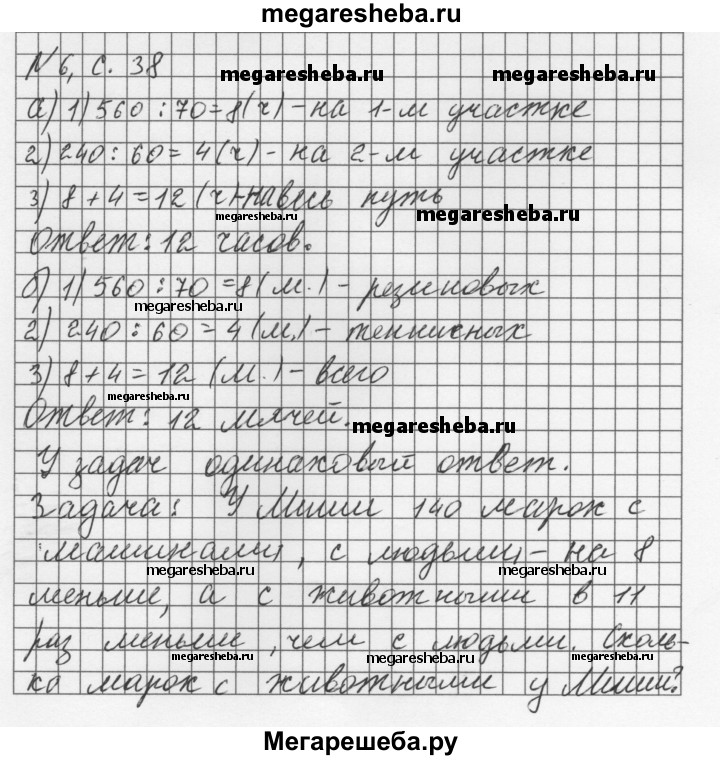 megaresheba.ru
№ 6, с. 38
megaresheba.ru megaresheba.ru
а) 1) 560 : 70 = 8 (ч) - на 1-м участке
2) 240 : 60 = 4 (ч) - на 2-м участке
3) 8 + 4 = 12 (ч) - на весь путь
megaresheba.ru megaresheba.ru
Ответ: 12 часов.
б) 1) 560 : 70 = 8 (м.) - резиновых
megaresheba.ru
2) 240 : 60 = 4 (м.) - теннисных
3) 8 + 4 = 12 (м.) - всего
megaresheba.ru
Ответ: 12 мячей.
megaresheba.ru
У задач одинаковый ответ.
Задача: У Миши 140 марок с
машинами, с людьми - на 8
megaresheba.ru megaresheba.ru
меньше, а с животными в 11
раз меньше, чем с людьми. Сколь-
megaresheba.ru megaresheba.ru megaresheba.ru
ко марок с животными у Миши?
Мегарешеба.ру